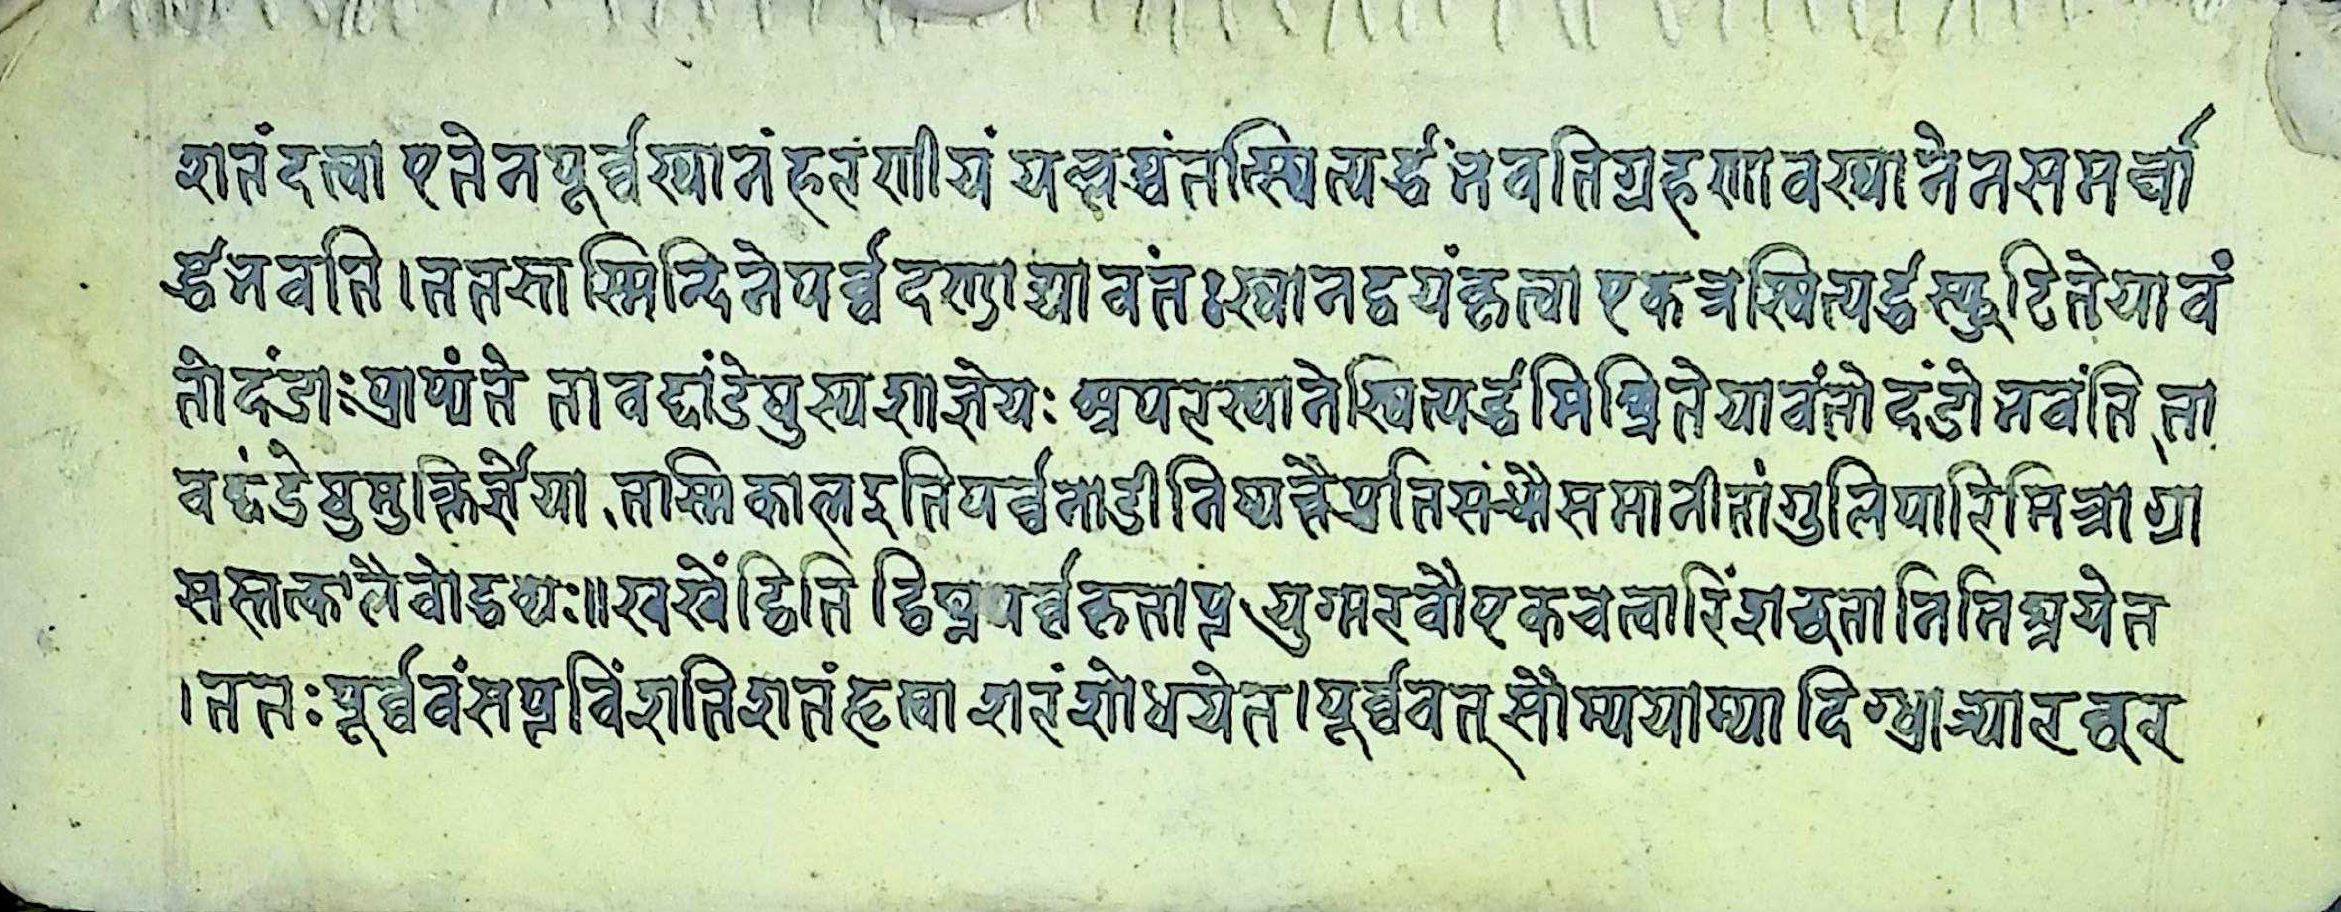 शतंदत्वा एतेनपूर्व्वस्थानंहरणीयं यल्लब्धंतत्स्थित्यर्द्धंभवतिग्रहणावस्थानेनसमर्च्चा
र्द्धभवति।ततस्तस्मिन्दिनेपर्व्वदण्डाद्यावंतःस्थानद्वयंकृत्वा एकत्रस्थित्यर्द्धस्फुटितेयावं
तोदंडाःप्राप्यंते तावद्दांडेषुस्पर्शोज्ञेयः अपरस्थानेस्थित्यर्द्धमिश्रितेयावंतोदंडोभवंति ता
वद्दंडेषुमुक्तिर्ज्ञेया तस्मिकालइतिपर्व्वनाडीनिष्पन्नैप्रतिसंध्यैसमानीतांगुलिपारिमित्रोग्रा
सस्तत्कालेवोद्धव्यः॥खखेंद्विति द्विघ्नपर्व्वकृताप्त युग्मरवौएकचत्वारिंशच्छतानिमिश्रयेत
।ततःपूर्व्ववंसप्तविंशतिशतंहृत्वा शतंशोधयेत।पूर्व्ववत् सौम्ययाम्या दिग्